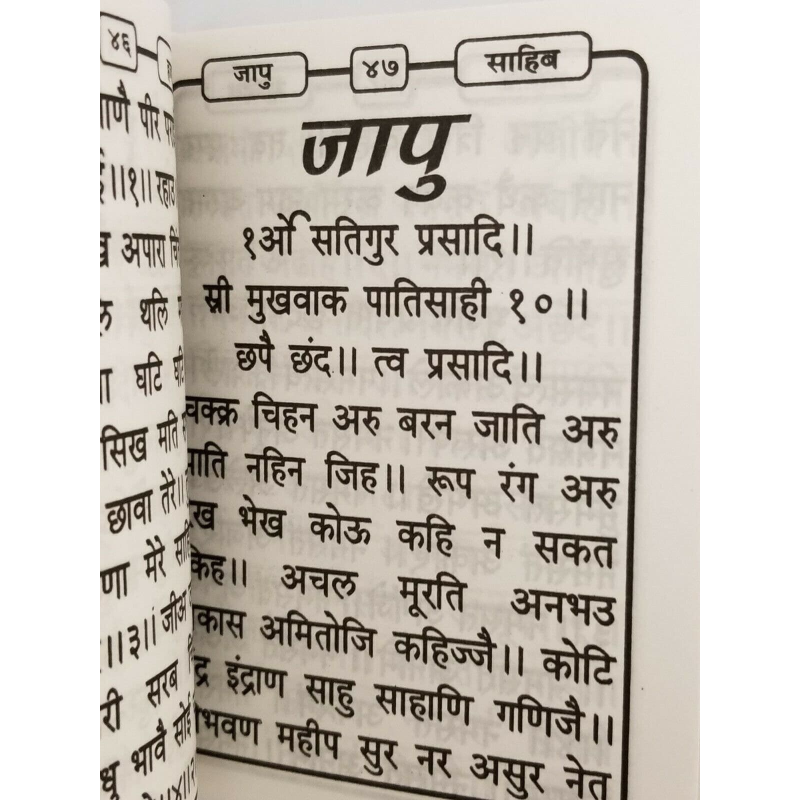 ४६
पीर
।।१।। रहाउ
अपारा
थलि
घटि
सिख मति
छावा तेरै।।
मेरे
।।३।। जीअ
सरब
भावै सोई
जापु ४७ साहिब
जापु
१ओं सतिगुर प्रसादि।।
स्री मुखवाक पातिसाही १०।।
छपै छंद।। त्व प्रसादि।।
चक्क्र चिहन अरु बरन जाति अरु
नहिन जिह।। रूप रंग अरु
भेख कोऊ कहि न सकत
किह।। अचल मूरति अनभउ
अमितोजि कहिज्जै।। कोटि
इंद्राण साहु साहाणि गणिजै।।
महीप सुर नर असुर नेत